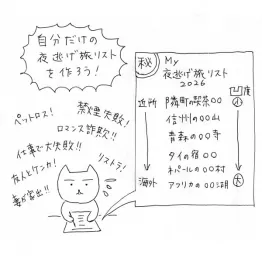 自分だけの
夜逃げ旅リスト
を作ろう!
ペットロス!
禁煙失敗!
ロマンス詐欺!!
仕事で大失敗!!
リストラ!
友人とケンカ!
妻が家出!!
㊙ My
夜逃げ旅リスト
2026
凹度
近所
小
隣町の喫茶〇〇
信州の〇〇山
青森の〇〇寺
タイの宿〇〇
ネパールの〇〇村
海外
アフリカの〇〇湖
大